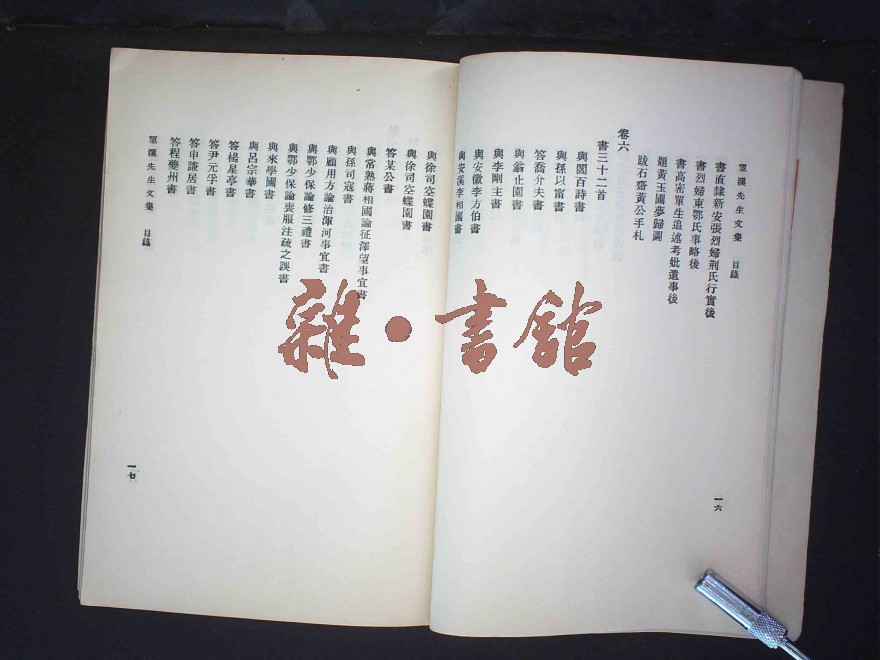 望溪先生文集 目錄
書直隸新安張烈婦荆氏行實後
書烈婦東鄂氏事略後
書高密單生追述考妣遺事後
題黃玉圃夢歸圖
跋石齋黃公手札
卷六
書三十二首
與閻百詩書
與孫以甯書
答喬介夫書
與翁止園書
與李剛主書
與安徽李方伯書
與安溪李相國書
一六
與徐司空蝶園書
與徐司空蝶園書
答某公書
與常熟蔣相國論征澤望事宜書
與孫司寇書
與顧用方論治渾河事宜書
與鄂少保論修三禮書
與鄂少保論喪服注疏之誤書
與來學圃書
與呂宗華書
答楊星亭書
答尹元孚書
答申謙居書
答程夔州書
望溪先生文集 目錄
一七
雜·書館